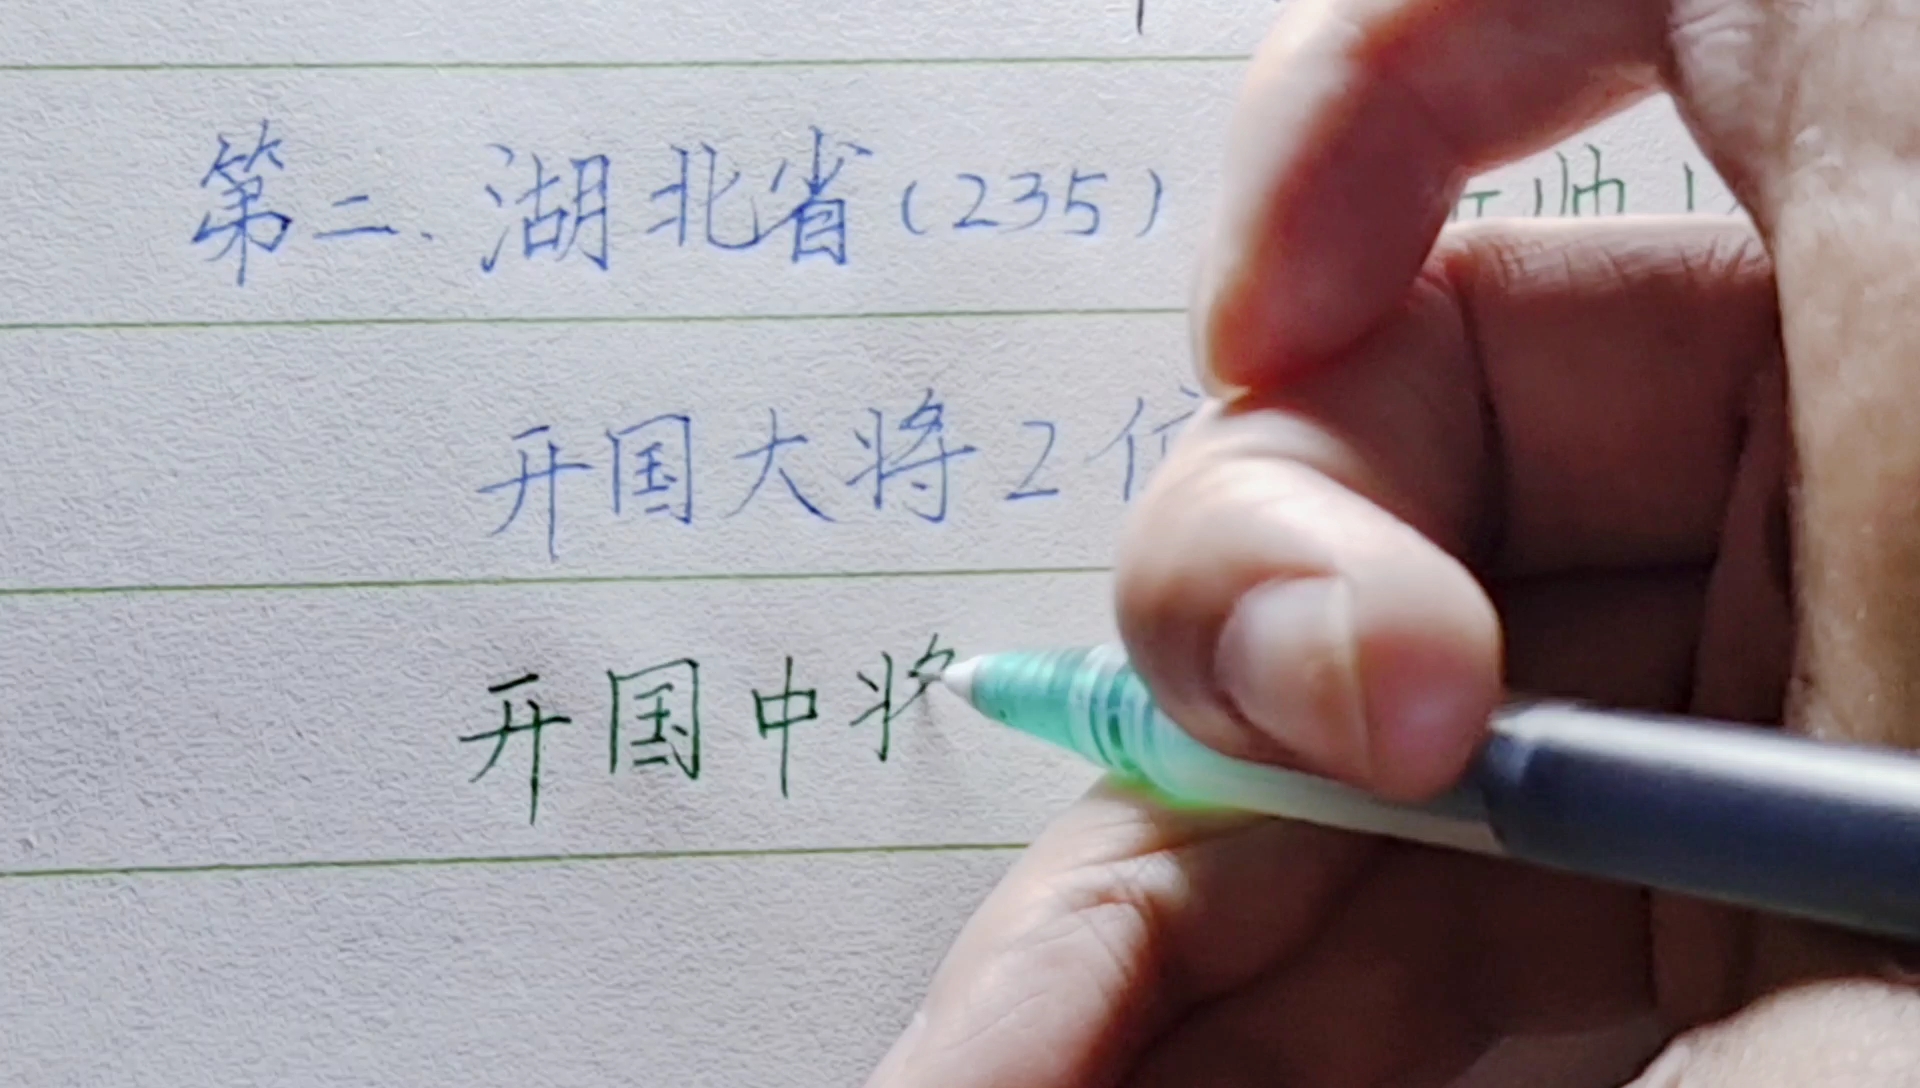 第二、湖北省(235) 元帅1
开国大将2位
开国中将